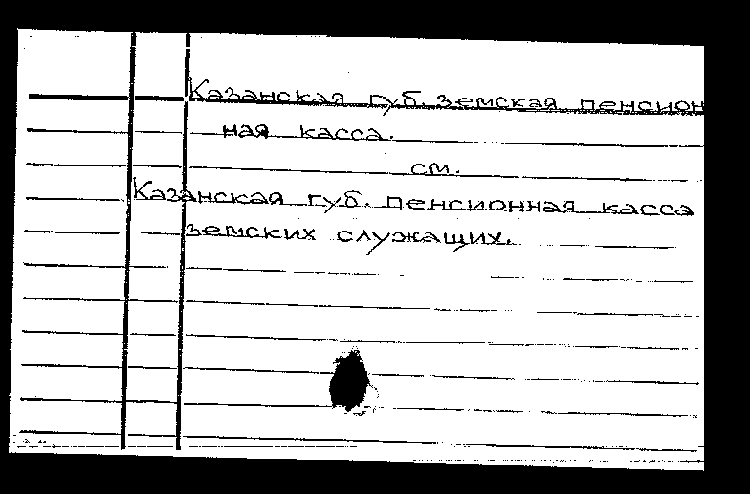 Казанская губ. земская пенсион
ная касса.
см.
Казанская губ. пенсионная касса
земских служащих.